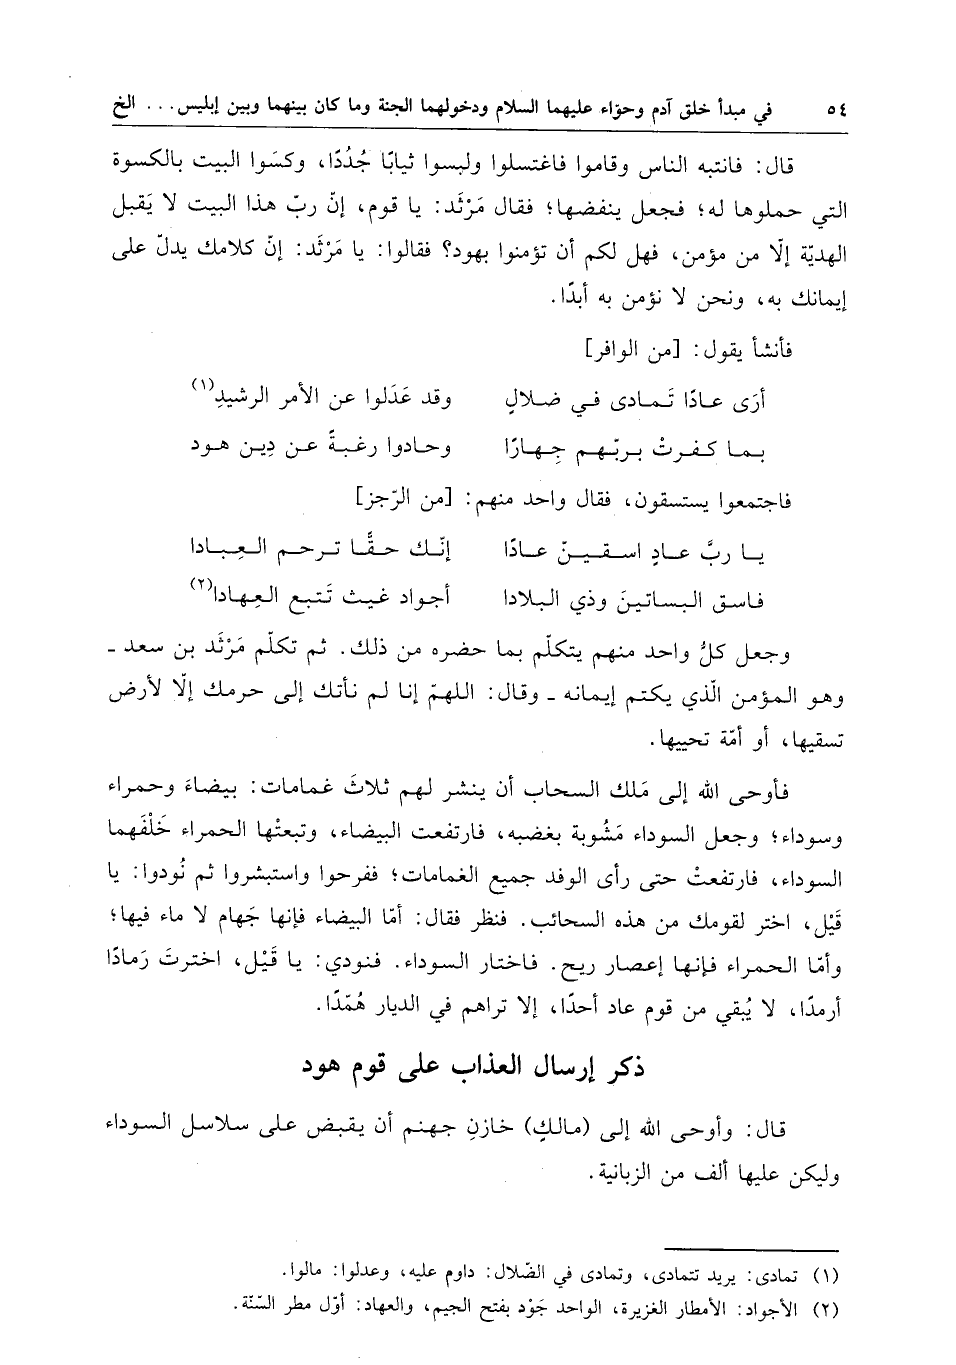 ٥٤ في مبدأ خلق آدم وحوّاء عليهما السلام ودخولهما الجنة وما كان بينهما وبين إبليس . . . الخ
قال: فانتبه الناس وقاموا فاغتسلوا ولبسوا ثيابًا جُدُدًا، وكسَوا البيت بالكسوة
التي حملوها له؛ فجعل ينفضها؛ فقال مَرْثَد: يا قوم، إنّ ربّ هذا البيت لا يَقبل
الهديّة إلّا من مؤمن، فهل لكم أن تؤمنوا بهود؟ فقالوا: يا مَرْثَد: إنّ كلامك يدلّ على
إيمانك به، ونحن لا نؤمن به أبدًا.
فأنشأ يقول: [من الوافر]
أرَى عـادًا تَـمادى فـي ضـلالٍ وقد عَدَلوا عن الأمر الرشيدِ(١)
بـمـا كـفـرتْ بـربّـهـم جِـهـارًا وحـادوا رغبـةً عـن دِيـن هـود
فاجتمعوا يستسقون، فقال واحد منهم: [من الرّجز]
يـا ربَّ عـادٍ اسـقـيـنّ عـادًا إنّـك حـقًّـا تـرحـم الـعِـبـادا
فاسـق الـبسـاتـينَ وذي البلادا أجواد غيـث تَتبع العِهادا(٢)
وجعل كلُّ واحد منهم يتكلّم بما حضره من ذلك. ثم تكلّم مَرْثَد بن سعد ـ
وهو المؤمن الّذي يكتم إيمانه ـ وقال: اللهمّ إنا لم نأتك إلى حرمك إلّا لأرض
تسقيها، أو أمّة تحييها.
فأوحى الله إلى مَلك السحاب أن ينشر لهم ثلاثَ غمامات: بيضاءَ وحمراء
وسوداء؛ وجعل السوداء مَشُوبة بغضبه، فارتفعت البيضاء، وتبعتْها الحمراء خَلْفَهما
السوداء، فارتفعتْ حتى رأى الوفد جميع الغمامات؛ ففرحوا واستبشروا ثم نُودوا: يا
قَيْل، اختر لقومك من هذه السحائب. فنظر فقال: أمّا البيضاء فإنها جَهام لا ماء فيها؛
وأمّا الحمراء فإنها إعصار ريح. فاختار السوداء. فنودي: يا قَيْل، اخترتَ رَمادًا
أرمدًا، لا يُبقي من قوم عاد أحدًا، إلا تراهم في الديار هُمّدًا.
ذكر إرسال العذاب على قوم هود
قال: وأوحى الله إلى (مالكٍ) خازنِ جهنم أن يقبض على سلاسل السوداء
وليكن عليها ألف من الزبانية.
(١) تمادى: يريد تتمادى، وتمادى في الضّلال: داوم عليه، وعدلوا: مالوا.
(٢) الأجواد: الأمطار الغزيرة، الواحد جَوْد بفتح الجيم، والعهاد: أوّل مطر السّنّة.